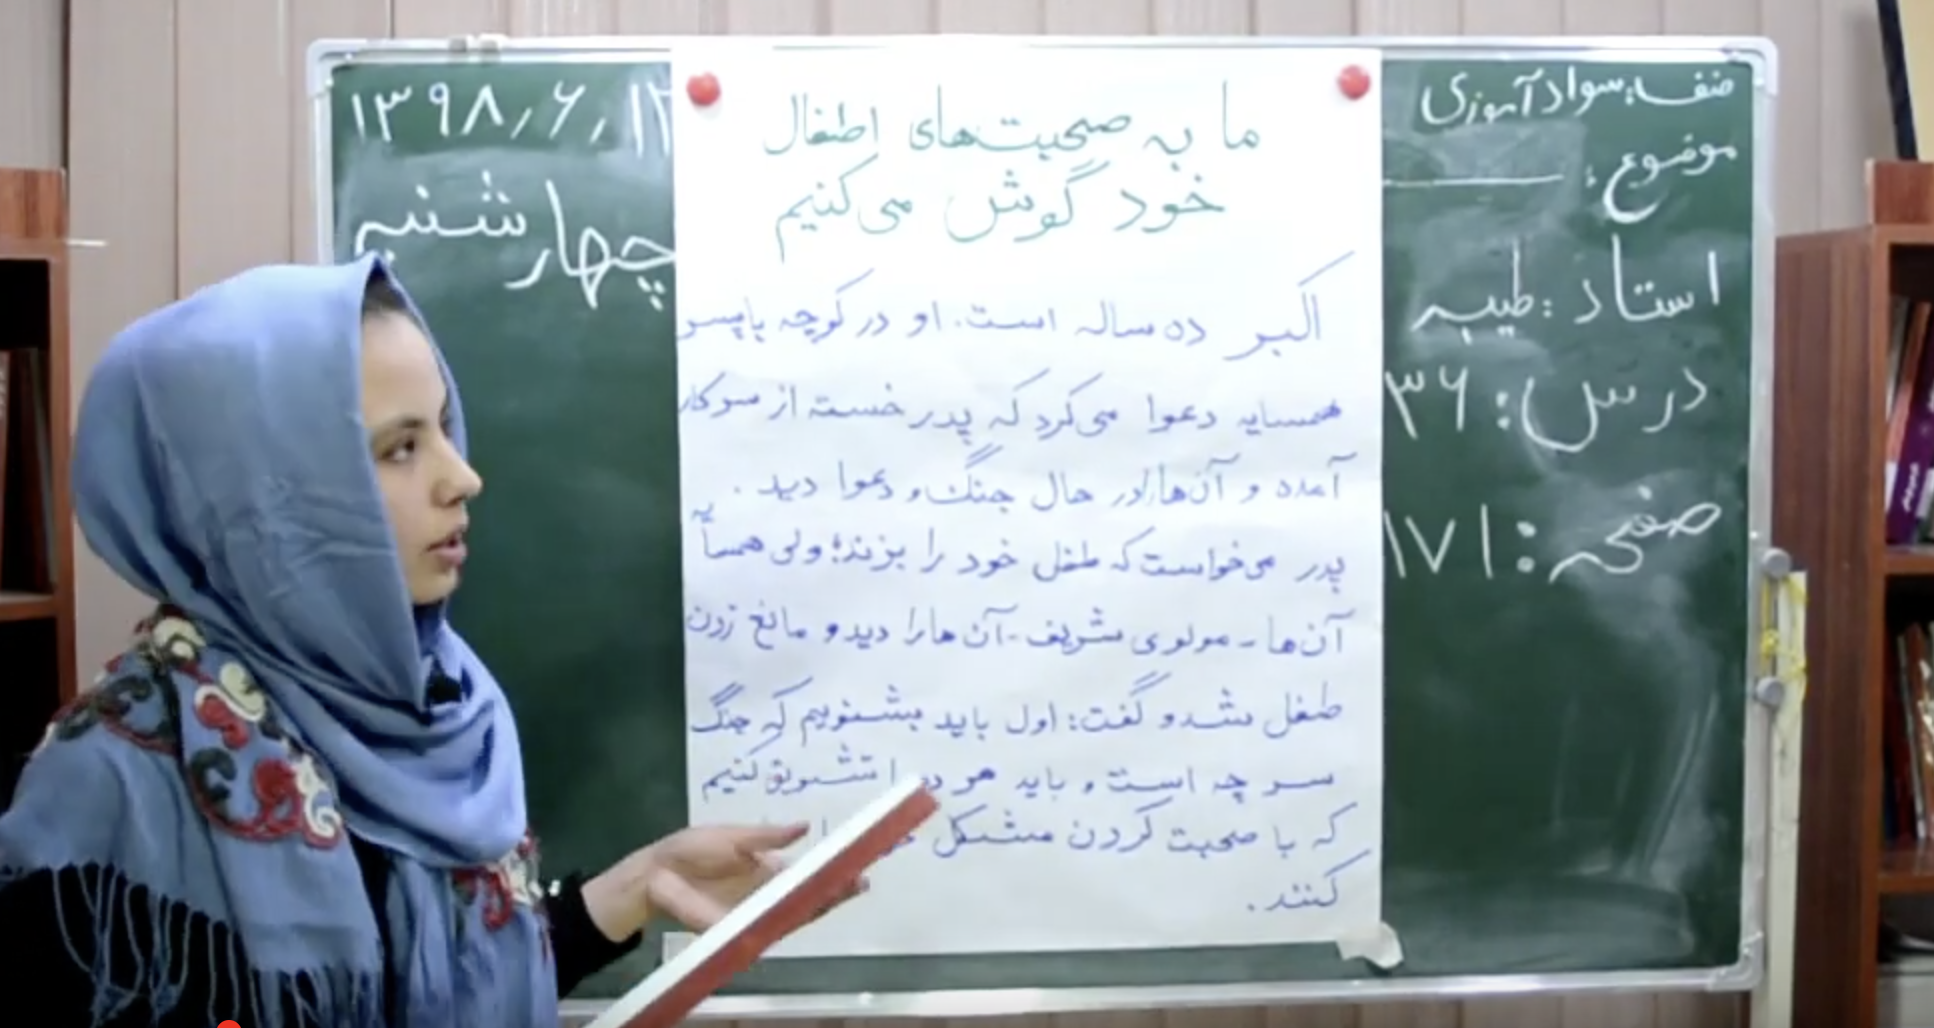 صنف: سواد آموزی
موضوع:
استاد: طیبه
درس: ۳۶
صفحه: ۱۷۱
ما به صحبت‌های اطفال
خود گوش می‌کنیم
اکبر ده ساله است. او در کوچه با پسر
همسایه دعوا می‌کرد که پدر خسته از سر کار
آمده و آن‌ها را در حال جنگ و دعوا دید.
پدر می‌خواست که طفل خود را بزند؛ ولی همسایه
آن‌ها - مولوی شریف - آن‌ها را دید و مانع زدن
طفل شد و گفت: اول باید بشنویم که جنگ
سر چه است و باید هر دو را تشویق کنیم
که با صحبت کردن مشکل
کنند.
۱۳۹۸/۶/۱۳
چهارشنبه